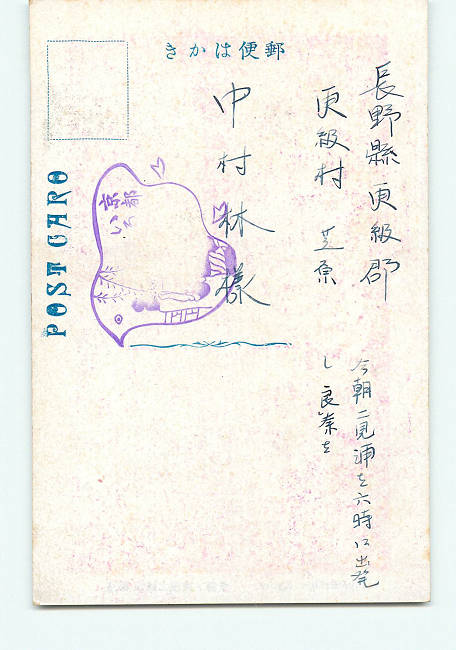 郵便はかき
長野縣更級郡
更級村芝原
中村林様
今朝二見浦を六時に出発
し
POST CARD
京都